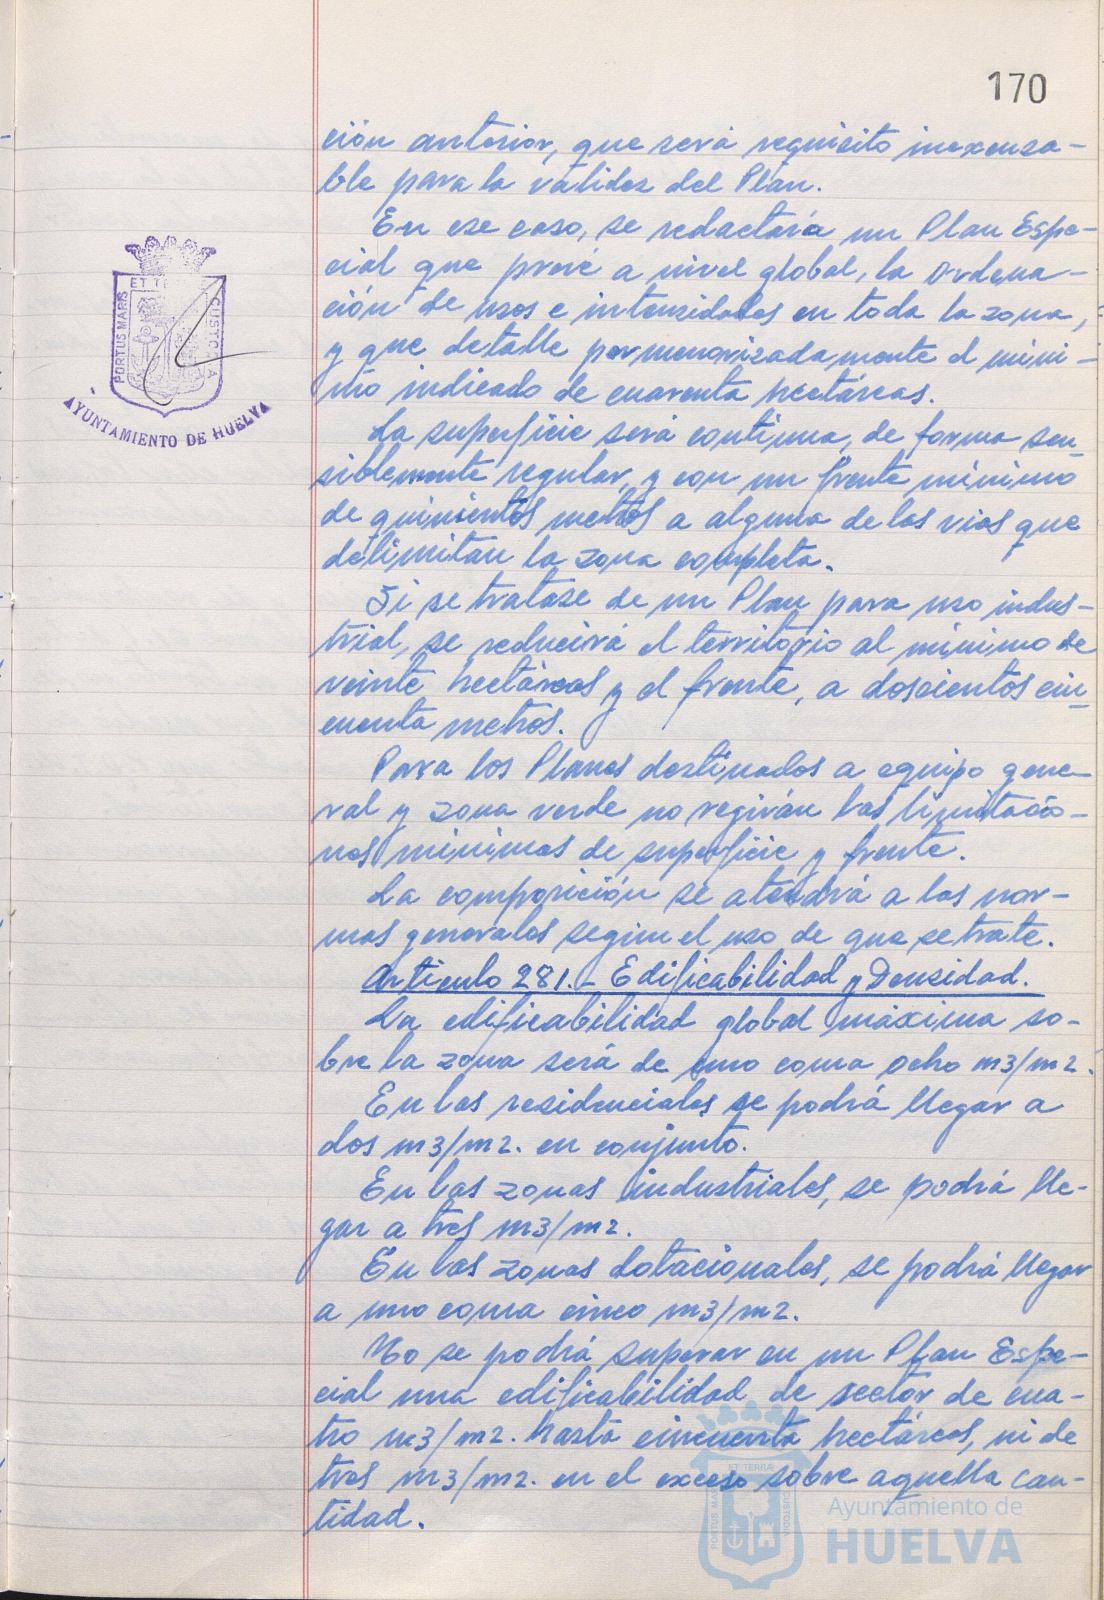 170
ción anterior, que será requisito inexcusa-
ble para la validez del Plan.
En ese caso, se redactará un Plan Espe-
cial que prevé a nivel global, la ordena-
ción de usos e intensidades en toda la zona,
y que detalle pormenorizadamente el míni-
mo indicado de cuarenta hectáreas.
La superficie será continua, de forma sen-
siblemente regular, y con un frente mínimo
de quinientos metros a alguna de las vías que
delimitan la zona completa.
Si se tratase de un Plan para uso indus-
trial, se reducirá el territorio al mínimo de
veinte hectáreas y el frente, a doscientos cin-
cuenta metros.
Para los Planes destinados a equipo gene-
ral y zona verde no regirán las limitacio-
nes mínimas de superficie y frente.
La composición se atendrá a las nor-
mas generales según el uso de que se trate.
Artículo 281.- Edificabilidad y Densidad.
La edificabilidad global máxima so-
bre la zona será de uno coma ocho m3/m2.
En las residenciales se podrá llegar a
dos m3/m2. en conjunto.
En las zonas industriales, se podrá lle-
gar a tres m3/m2.
En las zonas dotacionales, se podrá llegar
a uno coma cinco m3/m2.
No se podrá superar en un Plan Espe-
cial una edificabilidad de sector de cua-
tro m3/m2. hasta cincuenta hectáreas, ni de
tres m3/m2. en el exceso sobre aquella can-
tidad.
PORTUS MARIS ET TERRAE CUSTODIA
AYUNTAMIENTO DE HUELVA
PORTUS MARIS ET TERRAE CUSTODIA
Ayuntamiento de
HUELVA